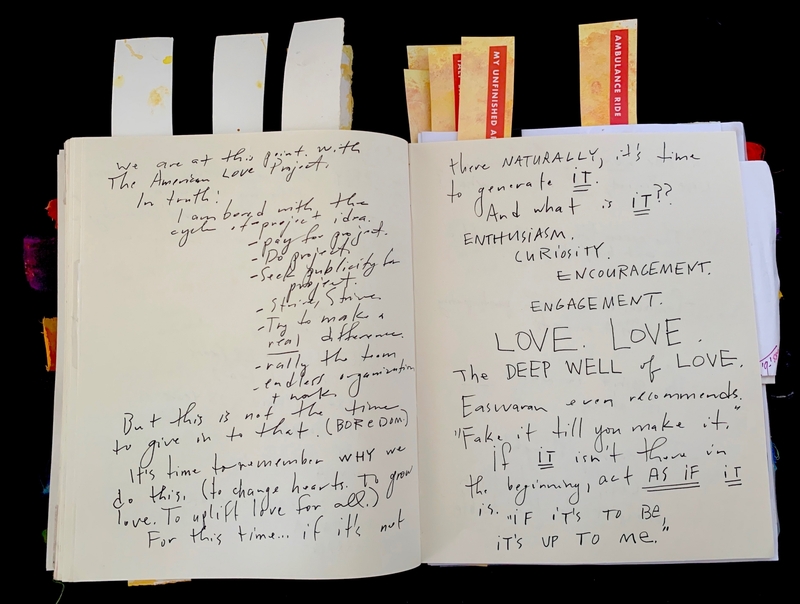 MY UNFINISHED
AMBULANCE RIDE
we are at this point with
The American Love Project.
In truth:
I am bored with the
cycle of-project idea.
-pay for project.
-Do project.
-Seek publicity for
project.
-Strive, Strive
-Try to make a
real difference.
-rally the team
-endless organization
+ work
But this is not the time
to give in to that. (BOREDOM)
It's time to remember WHY we
do this, (to change hearts. To grow
love. To uplift love for all.)
For this time... if it's not
there NATURALLY, it's time
to generate iT.
And what is iT??
ENTHUSIASM.
CURIOSITY.
ENCOURAGEMENT.
ENGAGEMENT.
LOVE. LOVE.
The DEEP WELL of LOVE.
Easwaran even recommends.
"Fake it till you make it,"
if IT isn't there in
the beginning, act AS IF iT
is. "IF IT'S TO BE,
iT'S UP TO ME."